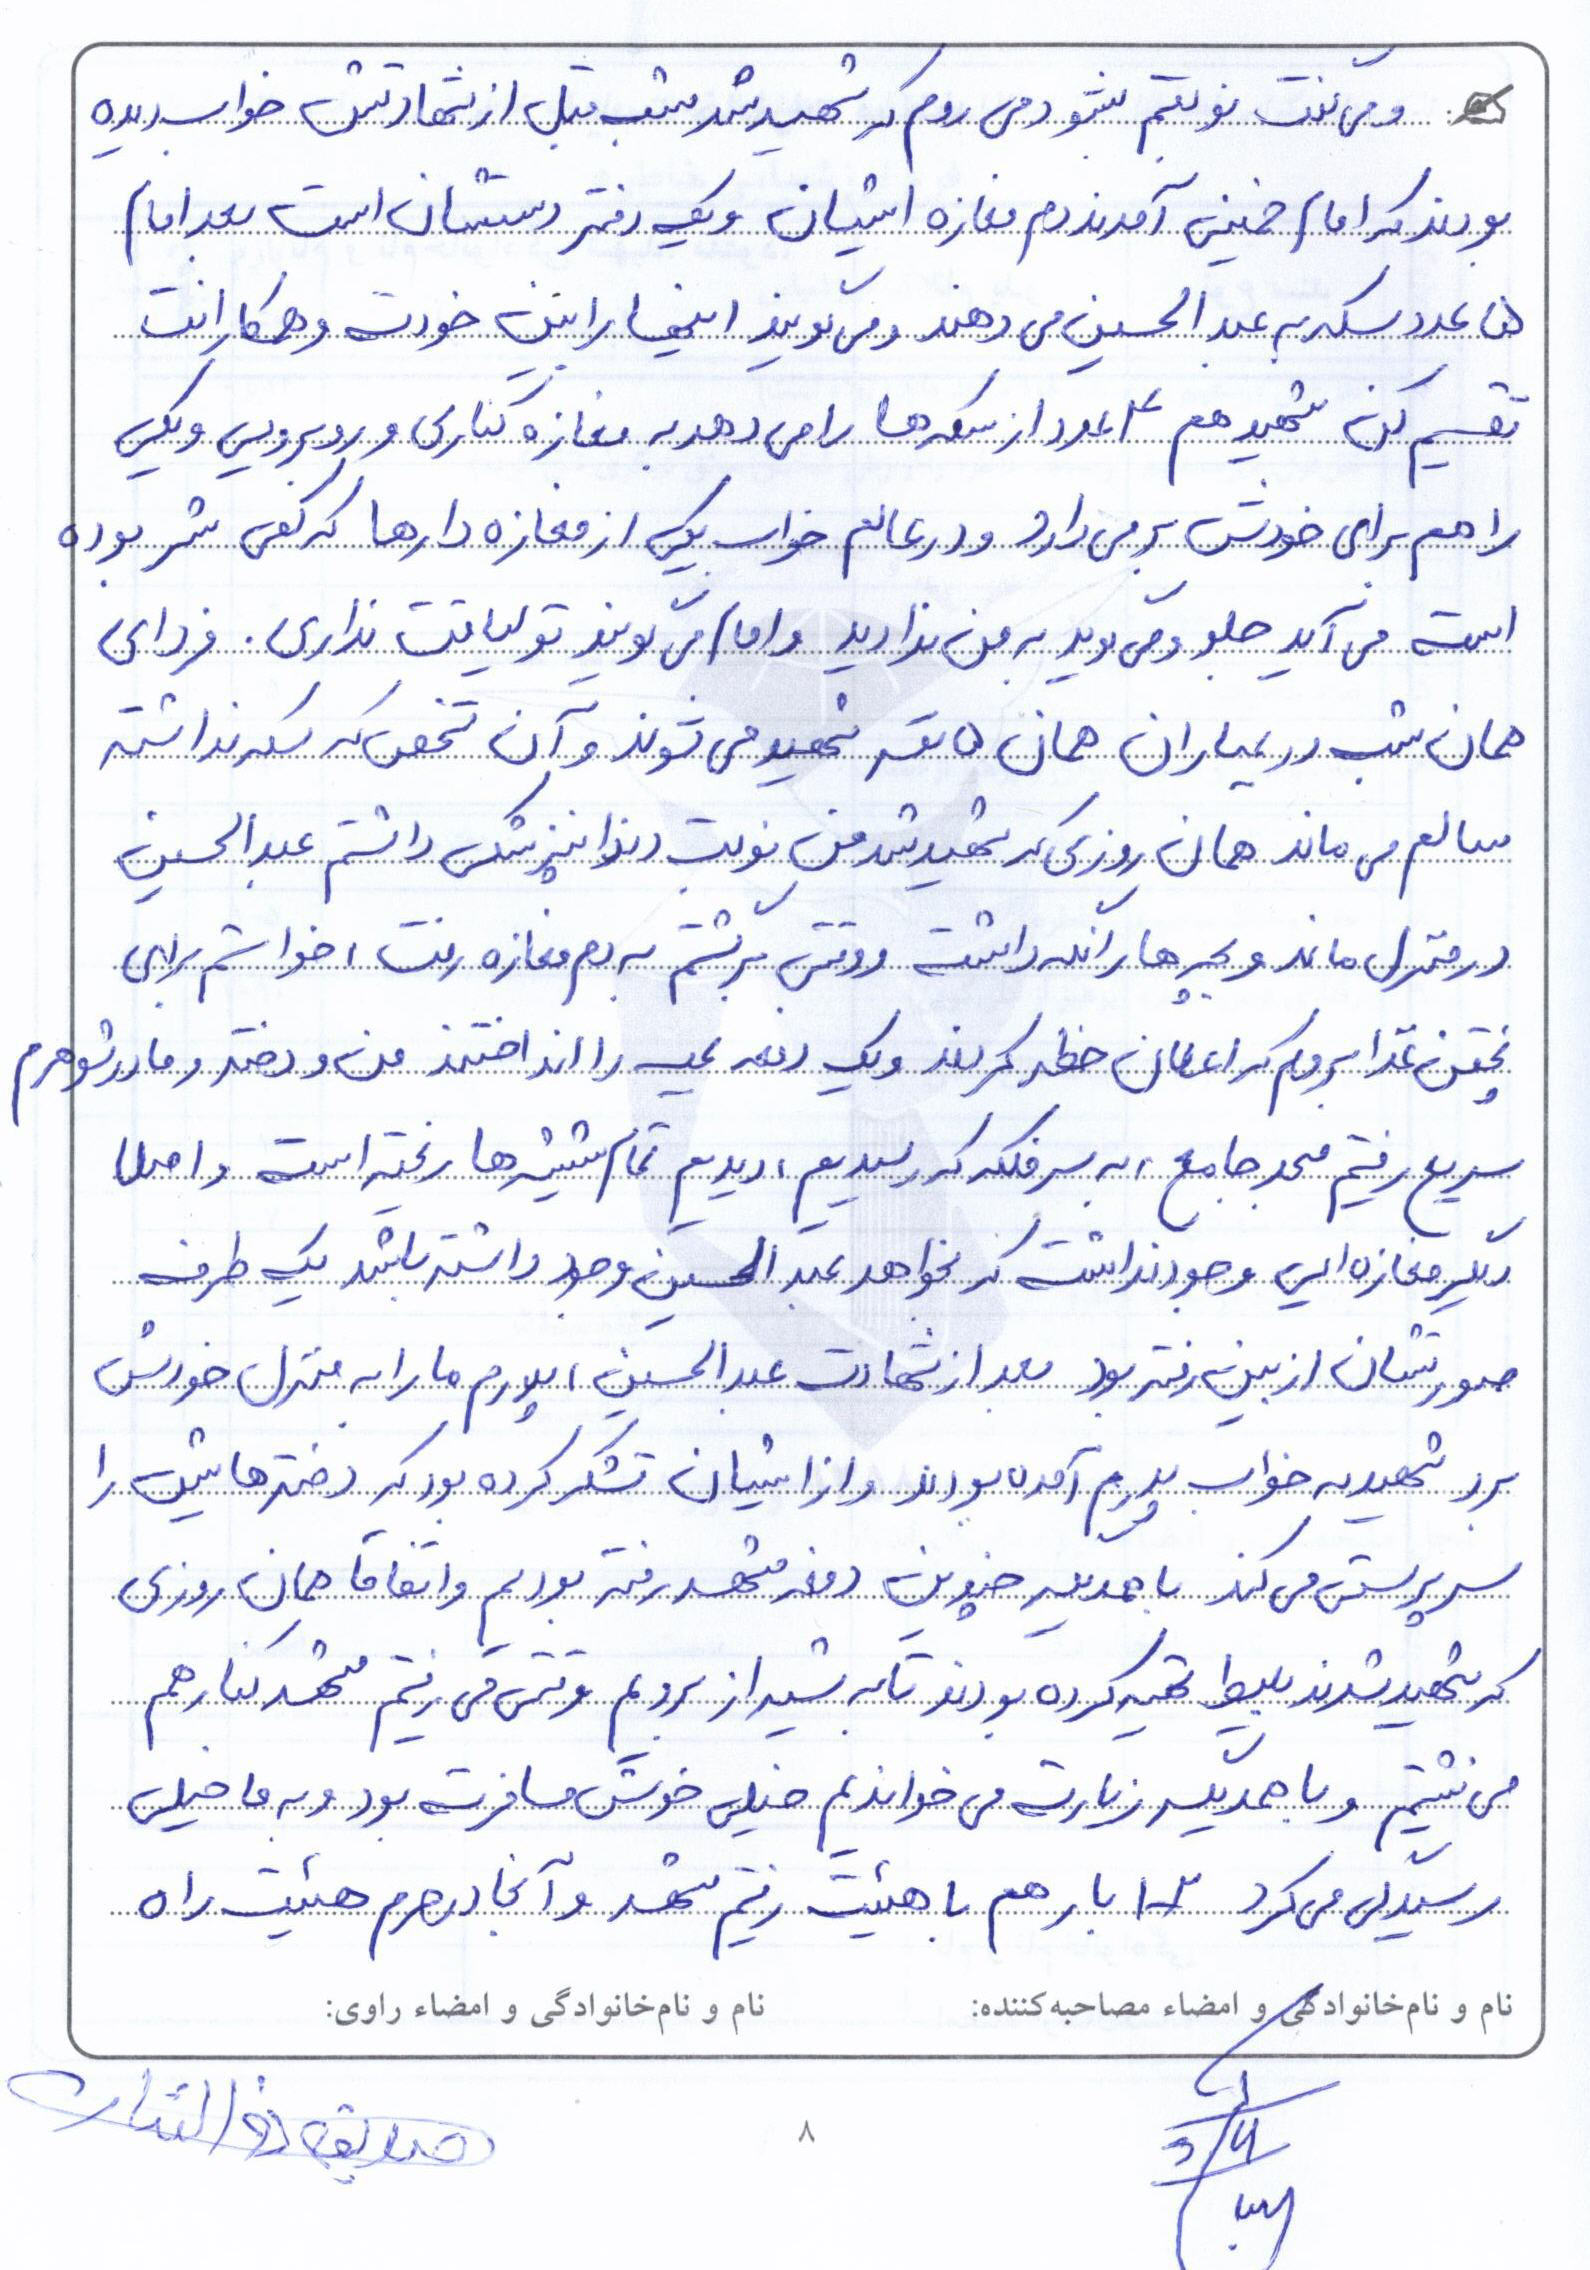 و می گفت نوبتم بشود می روم که شهید شد شب قبل از شهادتش خواب دیده
بودند که امام خمینی آمدند دم مغازه ایشان و یک دفتر دستشان است بعد امام
۵ عدد سکه به عبدالحسین می دهند و می گویند اینها را بین خودت و همکارانت
تقسیم کن شهید هم ۴ عدد از سکه ها را می دهد به مغازه کناری و روبرویی و یکی
را هم برای خودش بر می دارد و در عالم خواب یکی از مغازه دارها که کمی شر بوده
است می آید جلو و می گوید به من ندادید و امام می گویند تو لیاقت نداری. فردای
همان شب در بمباران همان ۵ نفر شهید می شوند و آن شخص که سکه نداشته
سالم می ماند همان روزی که شهید شد من نوبت دندانپزشکی داشتم عبدالحسین
در منزل ماند و بچه ها را نگه داشت و وقتی برگشتم به دم مغازه رفت، خواستم برای
پختن غذا بروم که اعلان خطر کردند و یک دفعه بمب را انداختند من و دختر و مادر شوهرم
سریع رفتیم مسجد جامع، به سر فلکه که رسیدیم، دیدیم تمام شیشه ها ریخته است و اصلا
دیگر مغازه ایی وجود نداشت که بخواهد عبدالحسین وجود داشته باشد یک طرف
صورتشان از بین رفته بود بعد از شهادت عبدالحسین، پدرم ما را به منزل خودش
برد شهید به خواب پدرم آمده بودند و از ایشان تشکر کرده بود که دخترهایش را
سرپرستی می کند با همدیگر چندین دفعه مشهد رفته بودیم و اتفاقا همان روزی
که شهید شدند بلیط تهیه کرده بودند تا به شیراز برویم وقتی می رفتیم مشهد کنار هم
می نشستیم و با همدیگر زیارت می خواندیم خیلی خوش مسافرت بود و به ما خیلی
رسیدگی می کرد ۳-۲ بار هم با هیئت رفتیم مشهد و آنجا در حرم هیئت راه
نام و نام‌خانوادگی و امضاء مصاحبه‌کننده: نام و نام‌خانوادگی و امضاء راوی:
۸